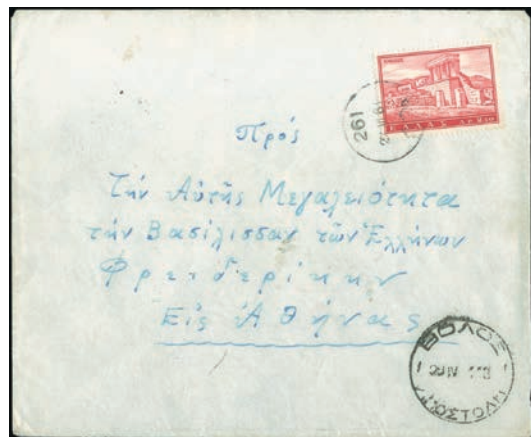 ΕΛΛΑΣ ΔΡ.
261
Πρός
Τήν Αὐτῆς Μεγαλειότητα
τήν Βασίλισσαν τῶν Ἑλλήνων
Φρειδερίκην
Εἰς Ἀθήνας
ΒΟΛΟΣ
ΑΠΟΣΤΟΛΗ